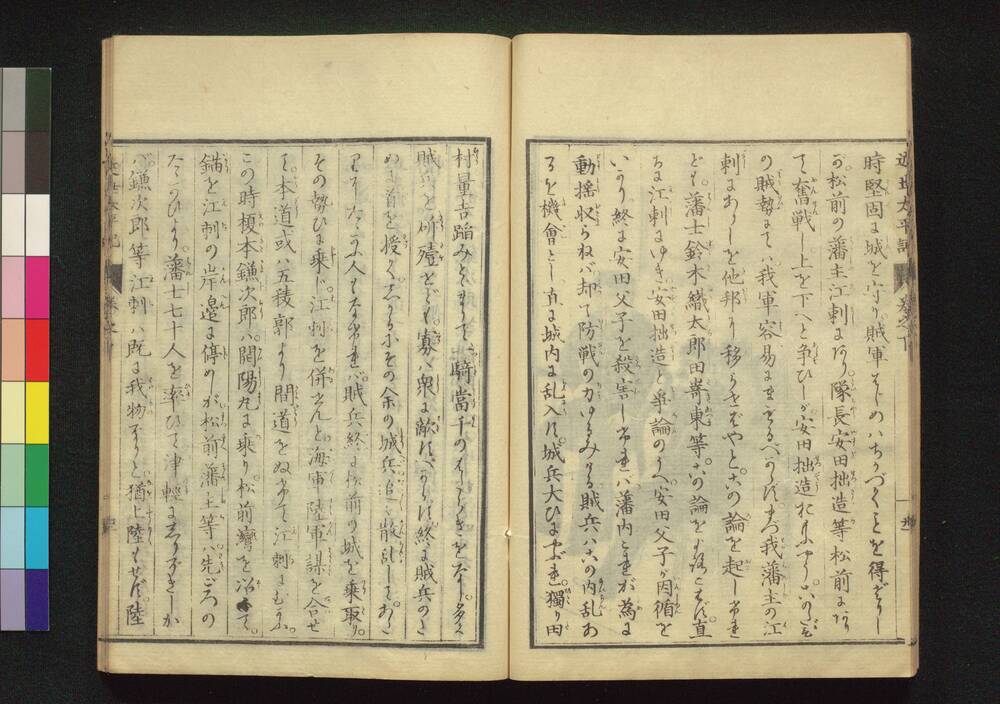 近世太平記
巻之下
時堅固に城を守り賊軍はじめハちかづくことを得ざりし
が松前の藩主江刺にあり隊長安田拙造等松前にあり
て奮戦し上を下へと争ひしが安田拙造おもふやう
の賊勢にてハ我軍容易に我藩主の江
刺にありしを他邦に移らせばやとこの論を起し
ども藩士鈴木織太郎田嵜東等が論を直
ちに江刺にゆき安田拙造と争論のうへ安田父子が因循を
いかり終に安田父子を殺害しければ藩内これが為に
動揺収らねバ却て防戦の力ゆるみける賊兵ハこの内乱あ
るを機會とし直に城内に乱入す城兵大ひにやぶれ獨り田
村量吉踏みとまりて一騎當千のはたらきをなし多く
賊兵を斫殪をども寡ハ衆に敵すべからず終に賊兵のた
めに首を授く その余の城兵追々散乱して
人もなければ賊兵終に松前の城を乗取り
その勢ひに乗じ江刺を併さんと海軍陸軍謀を合せ
て本道或ハ五稜郭より間道をぬけて江刺にむかふ
この時榎本鎌次郎ハ開陽丸に乗り松前灣を
錨を江刺の岸邉に停めしが松前藩士等ハ先ごろの
たゝかひより藩士七十人を率ひて津輕に しりぞきしか
バ鎌次郎等江刺ハ既に我物なりと猶上陸もせず陸